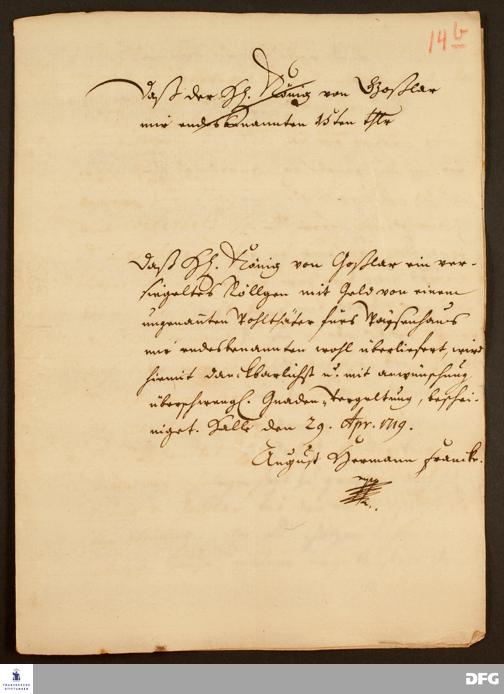 14 b
Daß der Hh. König von Goßlar
mir endesbenannten 15 ten Thlr
Daß Hh. König von Goßlar ein ver-
siegeltes Röllgen mit Geld von einem
ungenanten Wohlthäter fürs Waysenhaus
mir endesbenannten wohl überliefert, wird
hiermit danckbarlichst u. mit anwünschung
überschwengl. Gnaden-Vergeltung, beschei-
niget. Halle den 29. Apr. 1719.
August Hermann Francke.
FRANCKESCHE
STIFTUNGEN
DFG